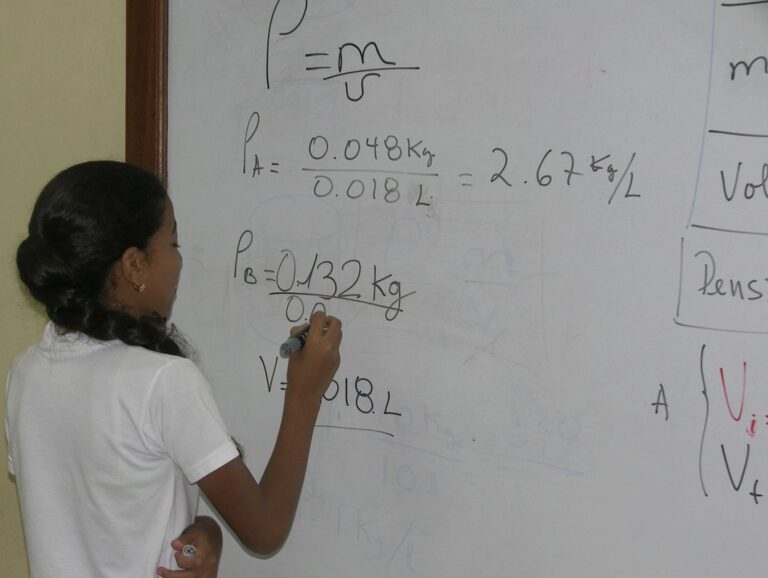 ρ = m/v
ρA = 0.048 Kg / 0.018 L = 2.67 Kg/L
ρB = 0.132 Kg / 0.0
V= 018.L
m
Vol
Dens
A { Vi=
Vf